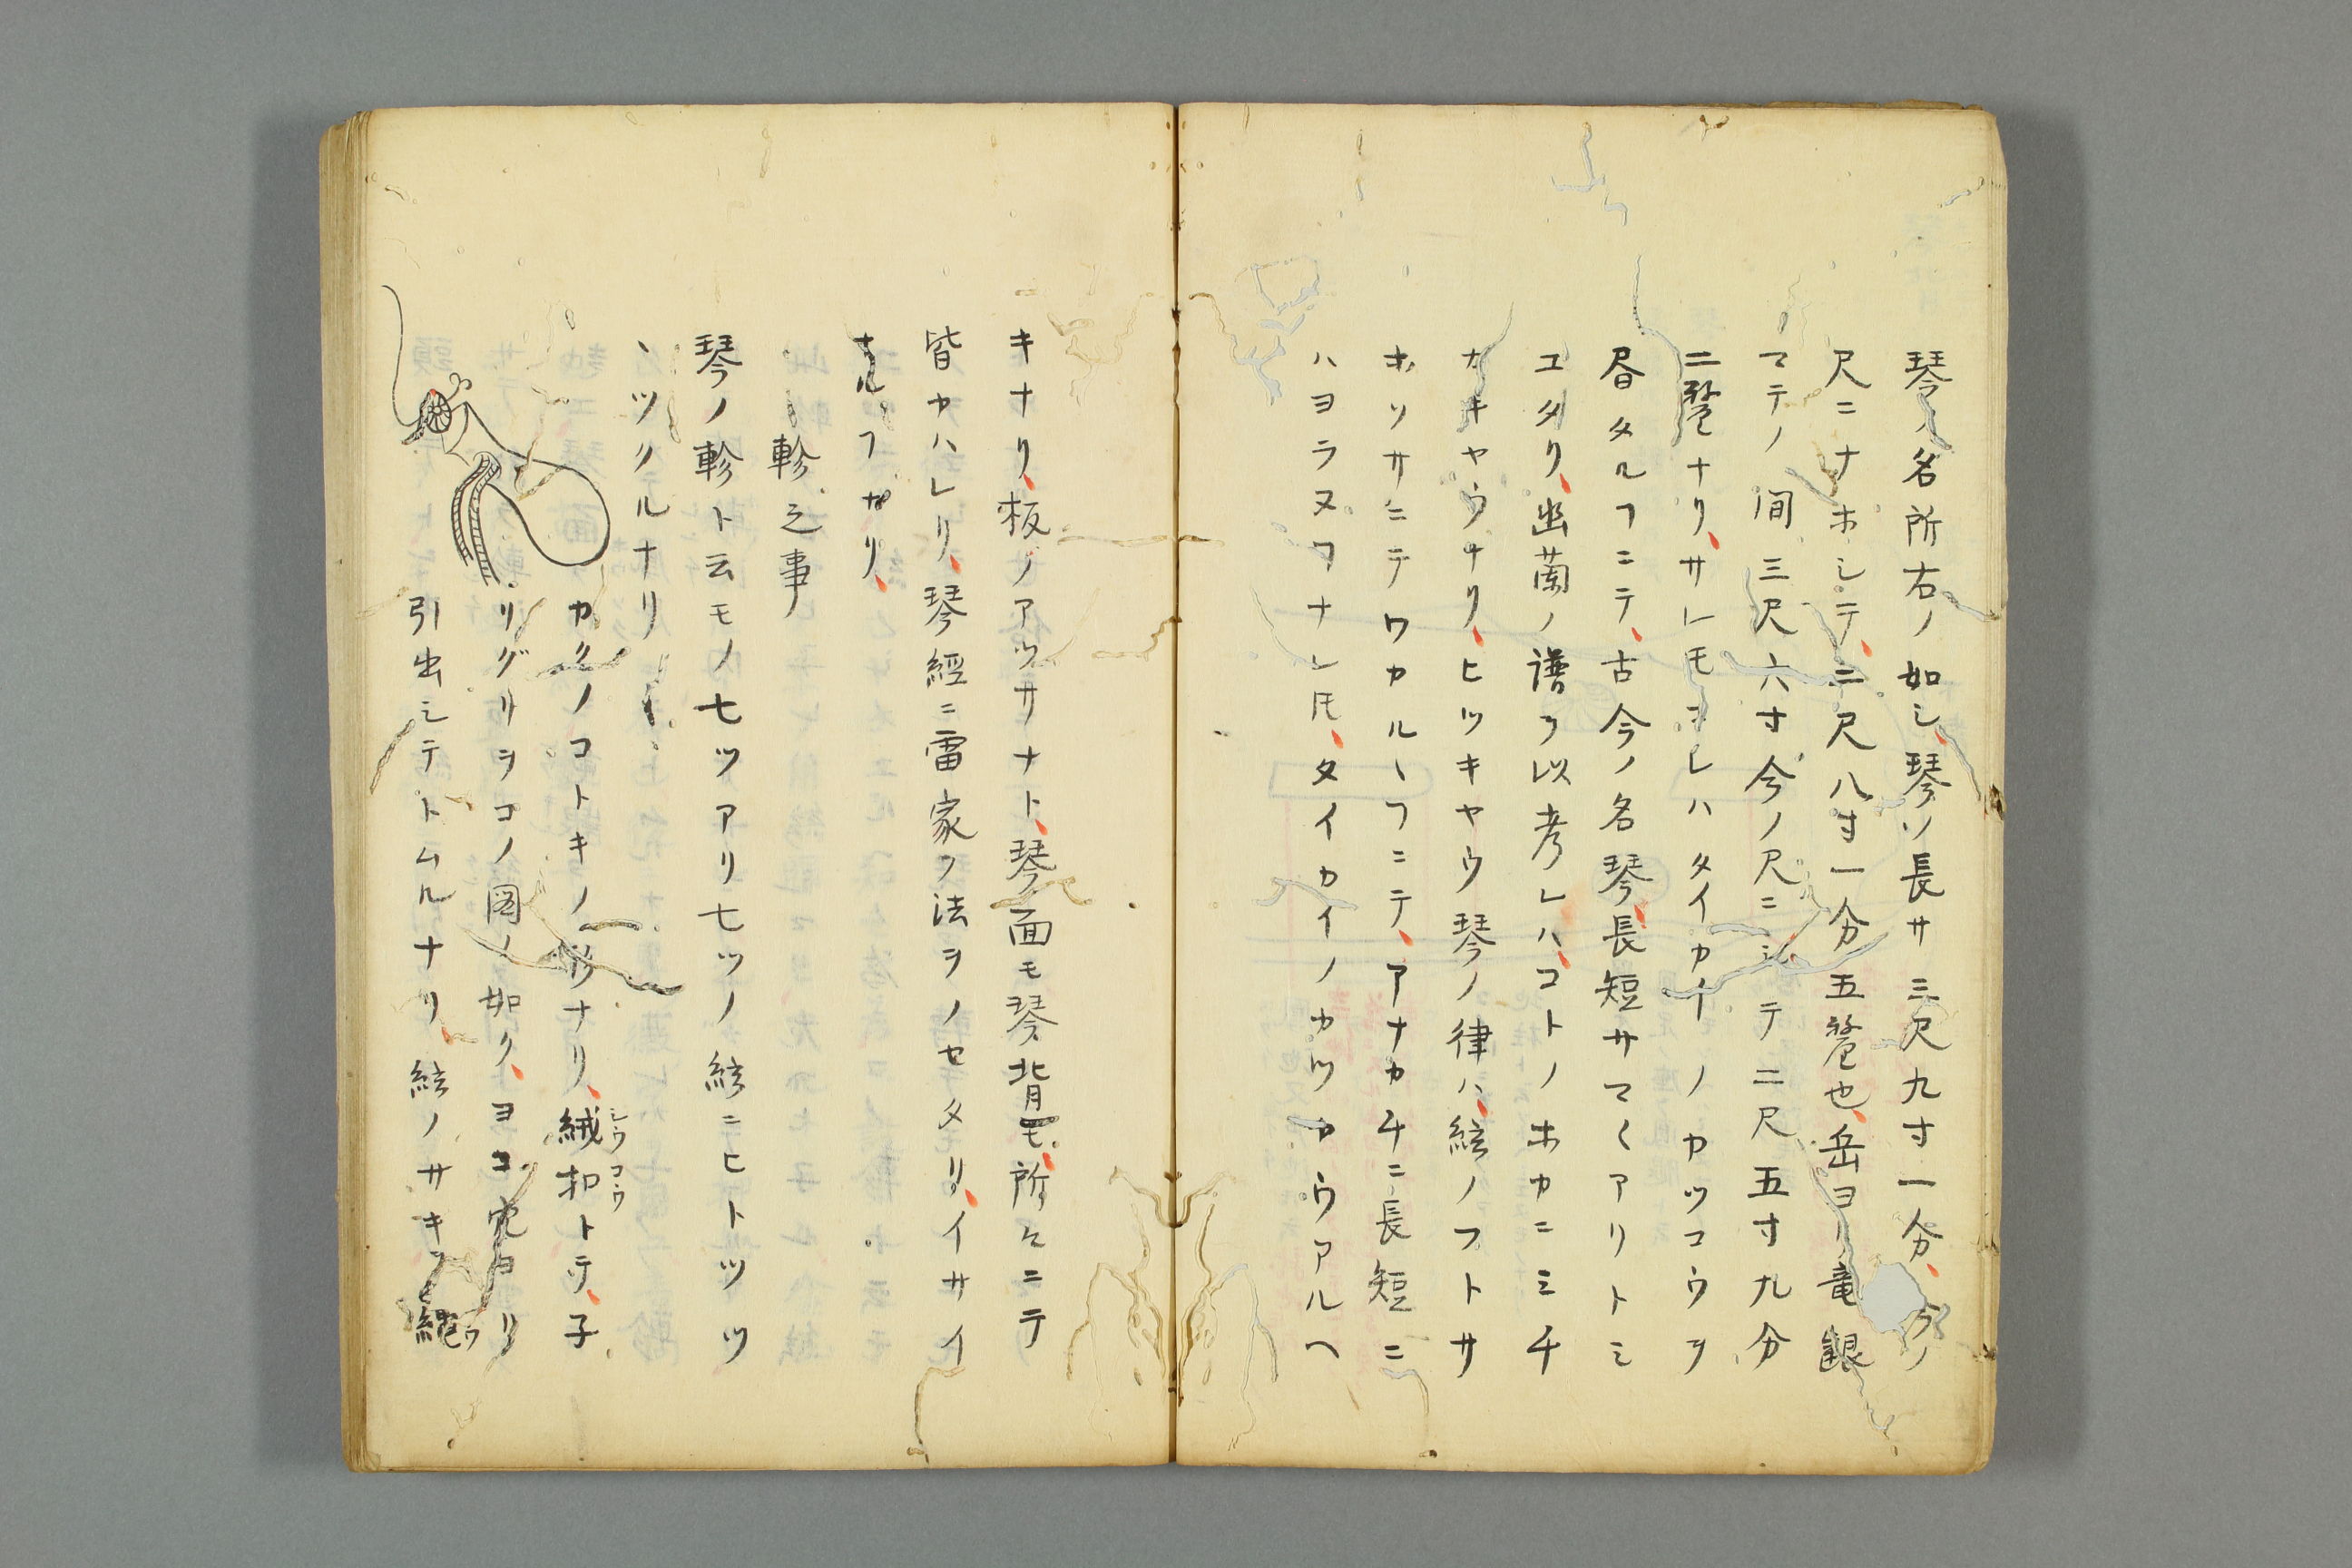 琴ノ名所右ノ如シ、琴ソ長サ三尺九寸一分、今ノ
尺ニナホシテ、二尺八寸一分五釐也、岳ヨリ竜齦
マテノ間三尺六寸今ノ尺ニシテ二尺五寸九分
二釐ナリ、サレモヨレハタイカイノカツコウヲ
昏タルヿニテ、古今ノ名琴、長短サマ〱アリトミ
エタリ、幽蘭ノ譜ヲ以考レハ、コトノホカニミチ
カキヤウナリ、ヒツキヤウ琴ノ律ハ、絃ノフトサ
ホソサニテワカルヽヿニテ、アナカチニ長短ニ
ハヨラヌヿナレ𪜈、タイカイノカツカウアルヘ
キナリ、板ノアツサナト、琴ノ面モ琴ノ背モ、所々ニテ
皆カハレリ、琴經ニ雷家ノ法ヲノセタリ、イサイ
ナルヿナリ、
軫之事
琴ノ軫ト云モノ七ツアリ七ツノ絃ニヒトツツ
ヽツクルナリ
カクノコトキノ形ナリ、絨扣トテ、子
シウコウ
リグリヲコノ圖ノ如ク、ヨコ穴ヨリ
引出シテトムルナリ、絃ノサキヲ繩ウ